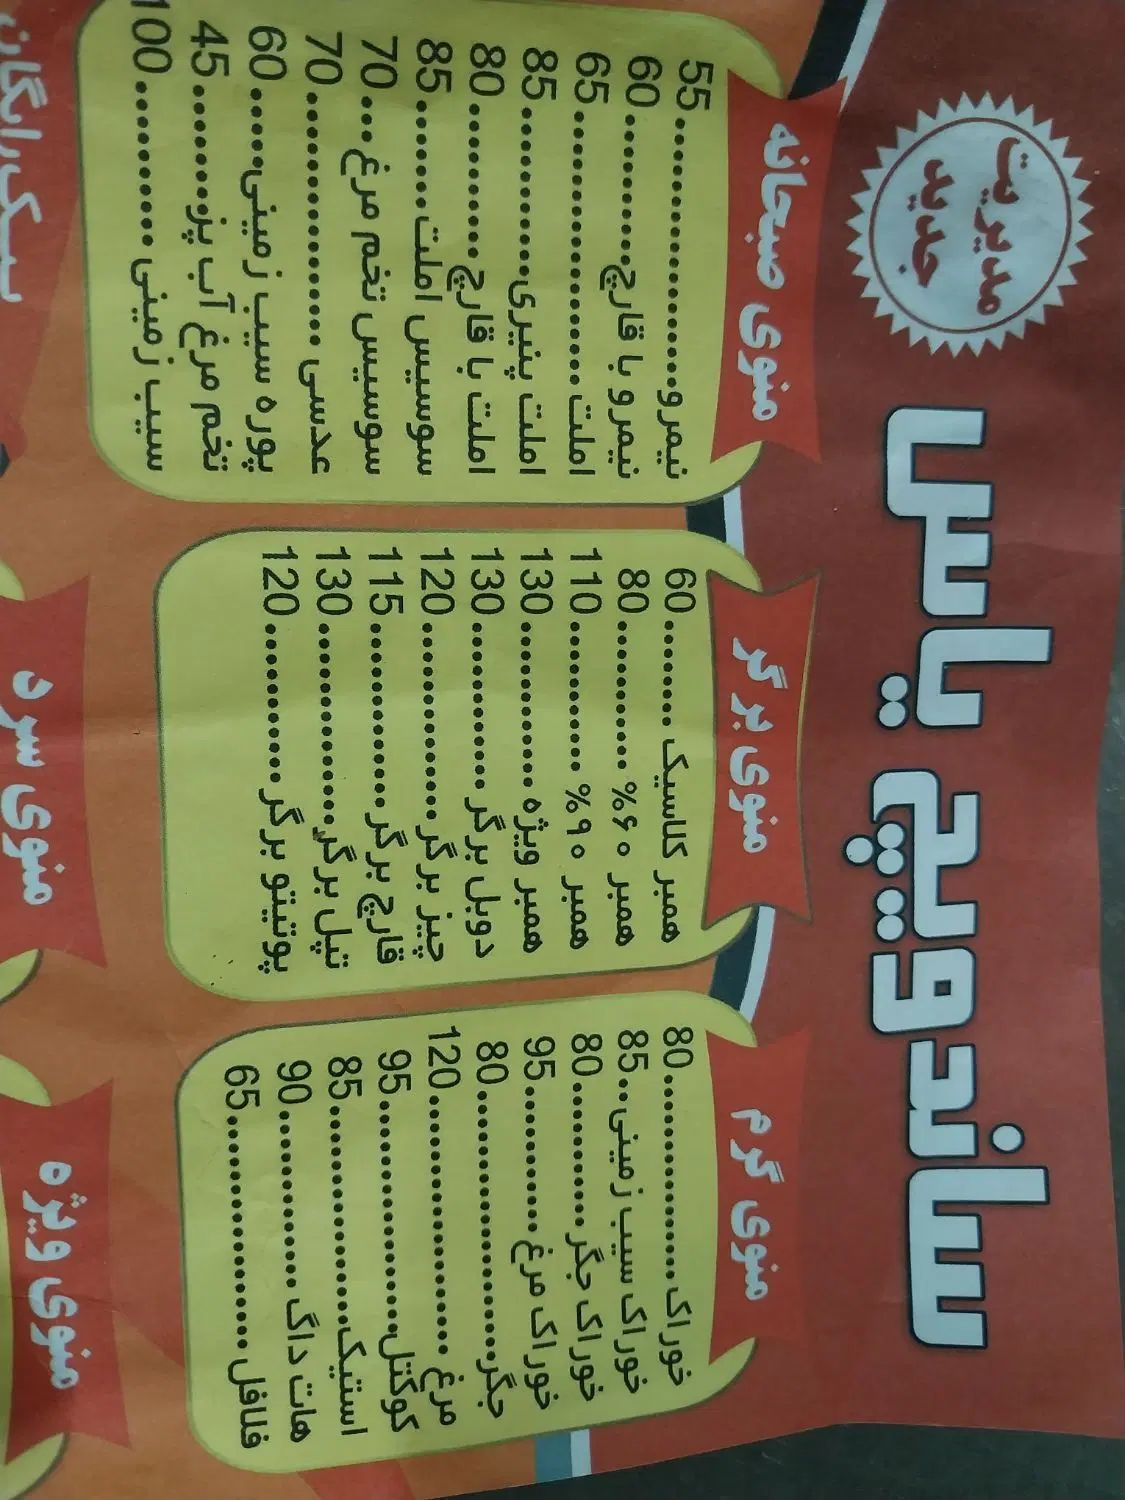 ساندویچ یاس
مدیریت
جدید
منوی گرم
خوراک 80
خوراک سیب زمینی 85
خوراک جگر 80
خوراک مرغ 95
جگر 80
مرغ 120
کوکتل 95
استیک 85
هات داگ 90
فلافل 65
منوی برگر
همبر کلاسیک 60
همبر ۶۰% 80
همبر ۹۰% 110
همبر ویژه 130
دوبل برگر 130
چیز برگر 120
قارچ برگر 115
تپل برگر 130
پوتیتو برگر 120
منوی صبحانه
نیمرو 55
نیمرو با قارچ 60
املت 65
املت پنیری 85
املت با قارچ 80
سوسیس املت 85
سوسیس تخم مرغ 70
عدسی 70
پوره سیب زمینی 60
تخم مرغ آب پز 45
سیب زمینی 100
منوی ویژه
منوی سرد
رایگان